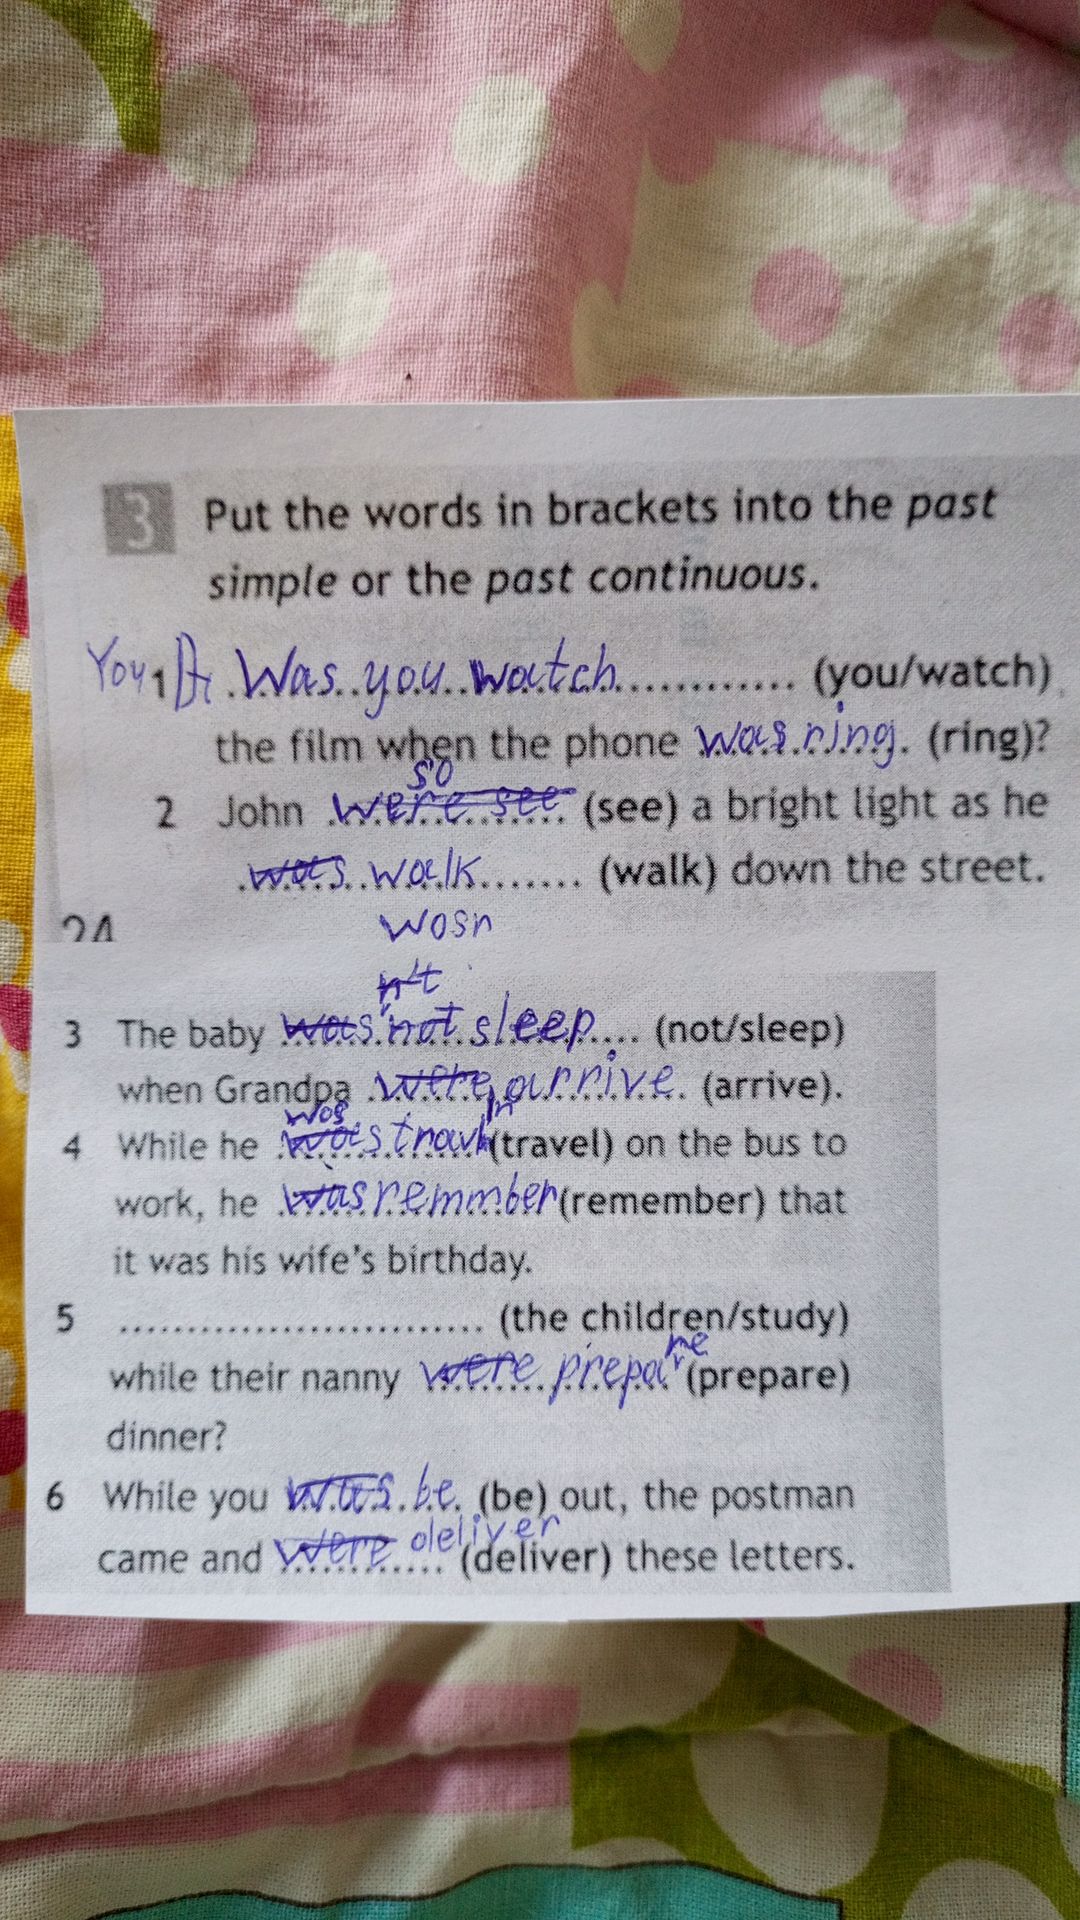 3 Put the words in brackets into the past
simple or the past continuous.
You 1 Was you watch (you/watch)
the film when the phone was ring. (ring)?
so
2 John were see (see) a bright light as he
was walk (walk) down the street.
24 wasn
n't
3 The baby was not sleep (not/sleep)
when Grandpa were arrive. (arrive).
was in
4 While he was travl (travel) on the bus to
work, he was remmber (remember) that
it was his wife's birthday.
5 .......................... (the children/study)
re
while their nanny were prepar (prepare)
dinner?
6 While you was be. (be) out, the postman
deliver
came and were (deliver) these letters.